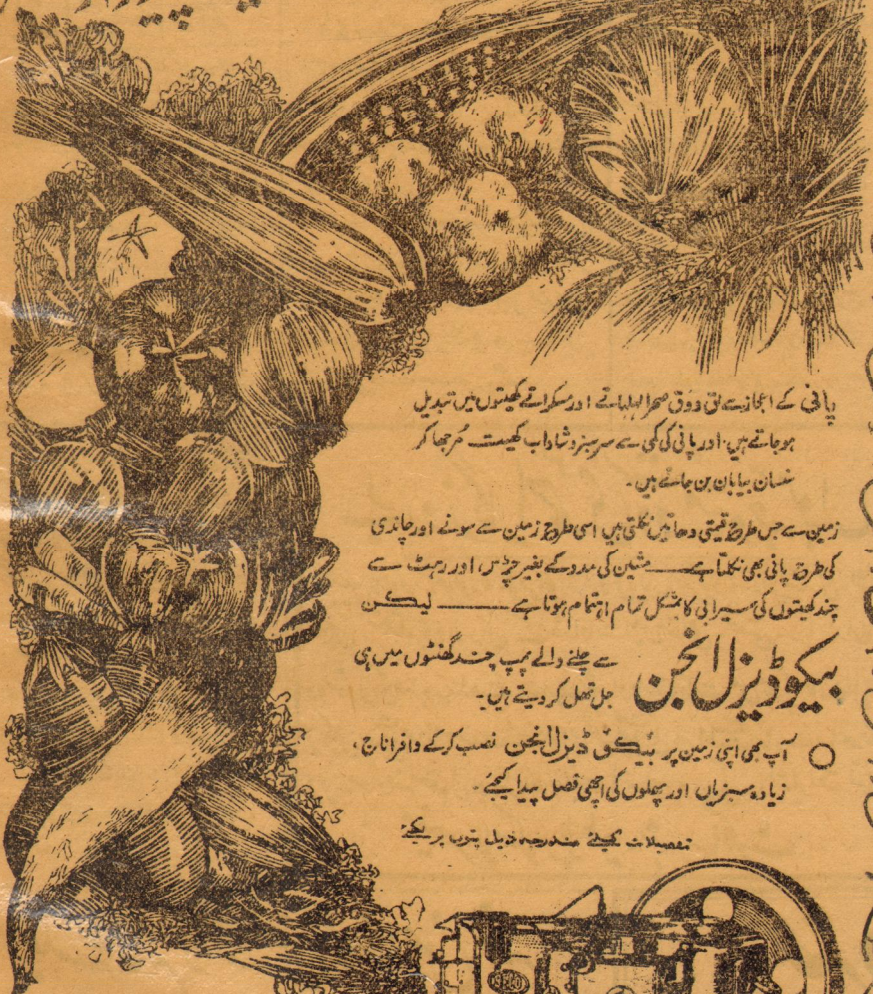 پانی کے اعجاز سے لق و دق صحرا لہلہاتے اور مسکراتے کھیتوں میں تبدیل
ہوجاتے ہیں۔ اور پانی کی کمی سے سرسبز و شاداب کھیت مُرجھا کر
سنسان بیابان بن جاتے ہیں۔
زمین سے جس طرح قیمتی دھاتیں نکلتی ہیں اسی طرح زمین سے سونے اور چاندی
کی طرح پانی بھی نکلتا ہے ـــــ مشین کی مدد کے بغیر چرس اور رہٹ سے
چند کھیتوں کی سیرابی کا بمشکل تمام اہتمام ہوتا ہے ـــــ لیکن
بیکو ڈیزل انجن سے چلنے والے پمپ چند گھنٹوں میں ہی
جل تھل کر دیتے ہیں۔
آپ بھی اپنی زمین پر بیکو ڈیزل انجن نصب کرکے وافر اناج،
زیادہ سبزیاں اور پھلوں کی اچھی فصل پیدا کیجئے۔
تفصیلات کیلئے مندرجہ ذیل پتوں پر لکھئے